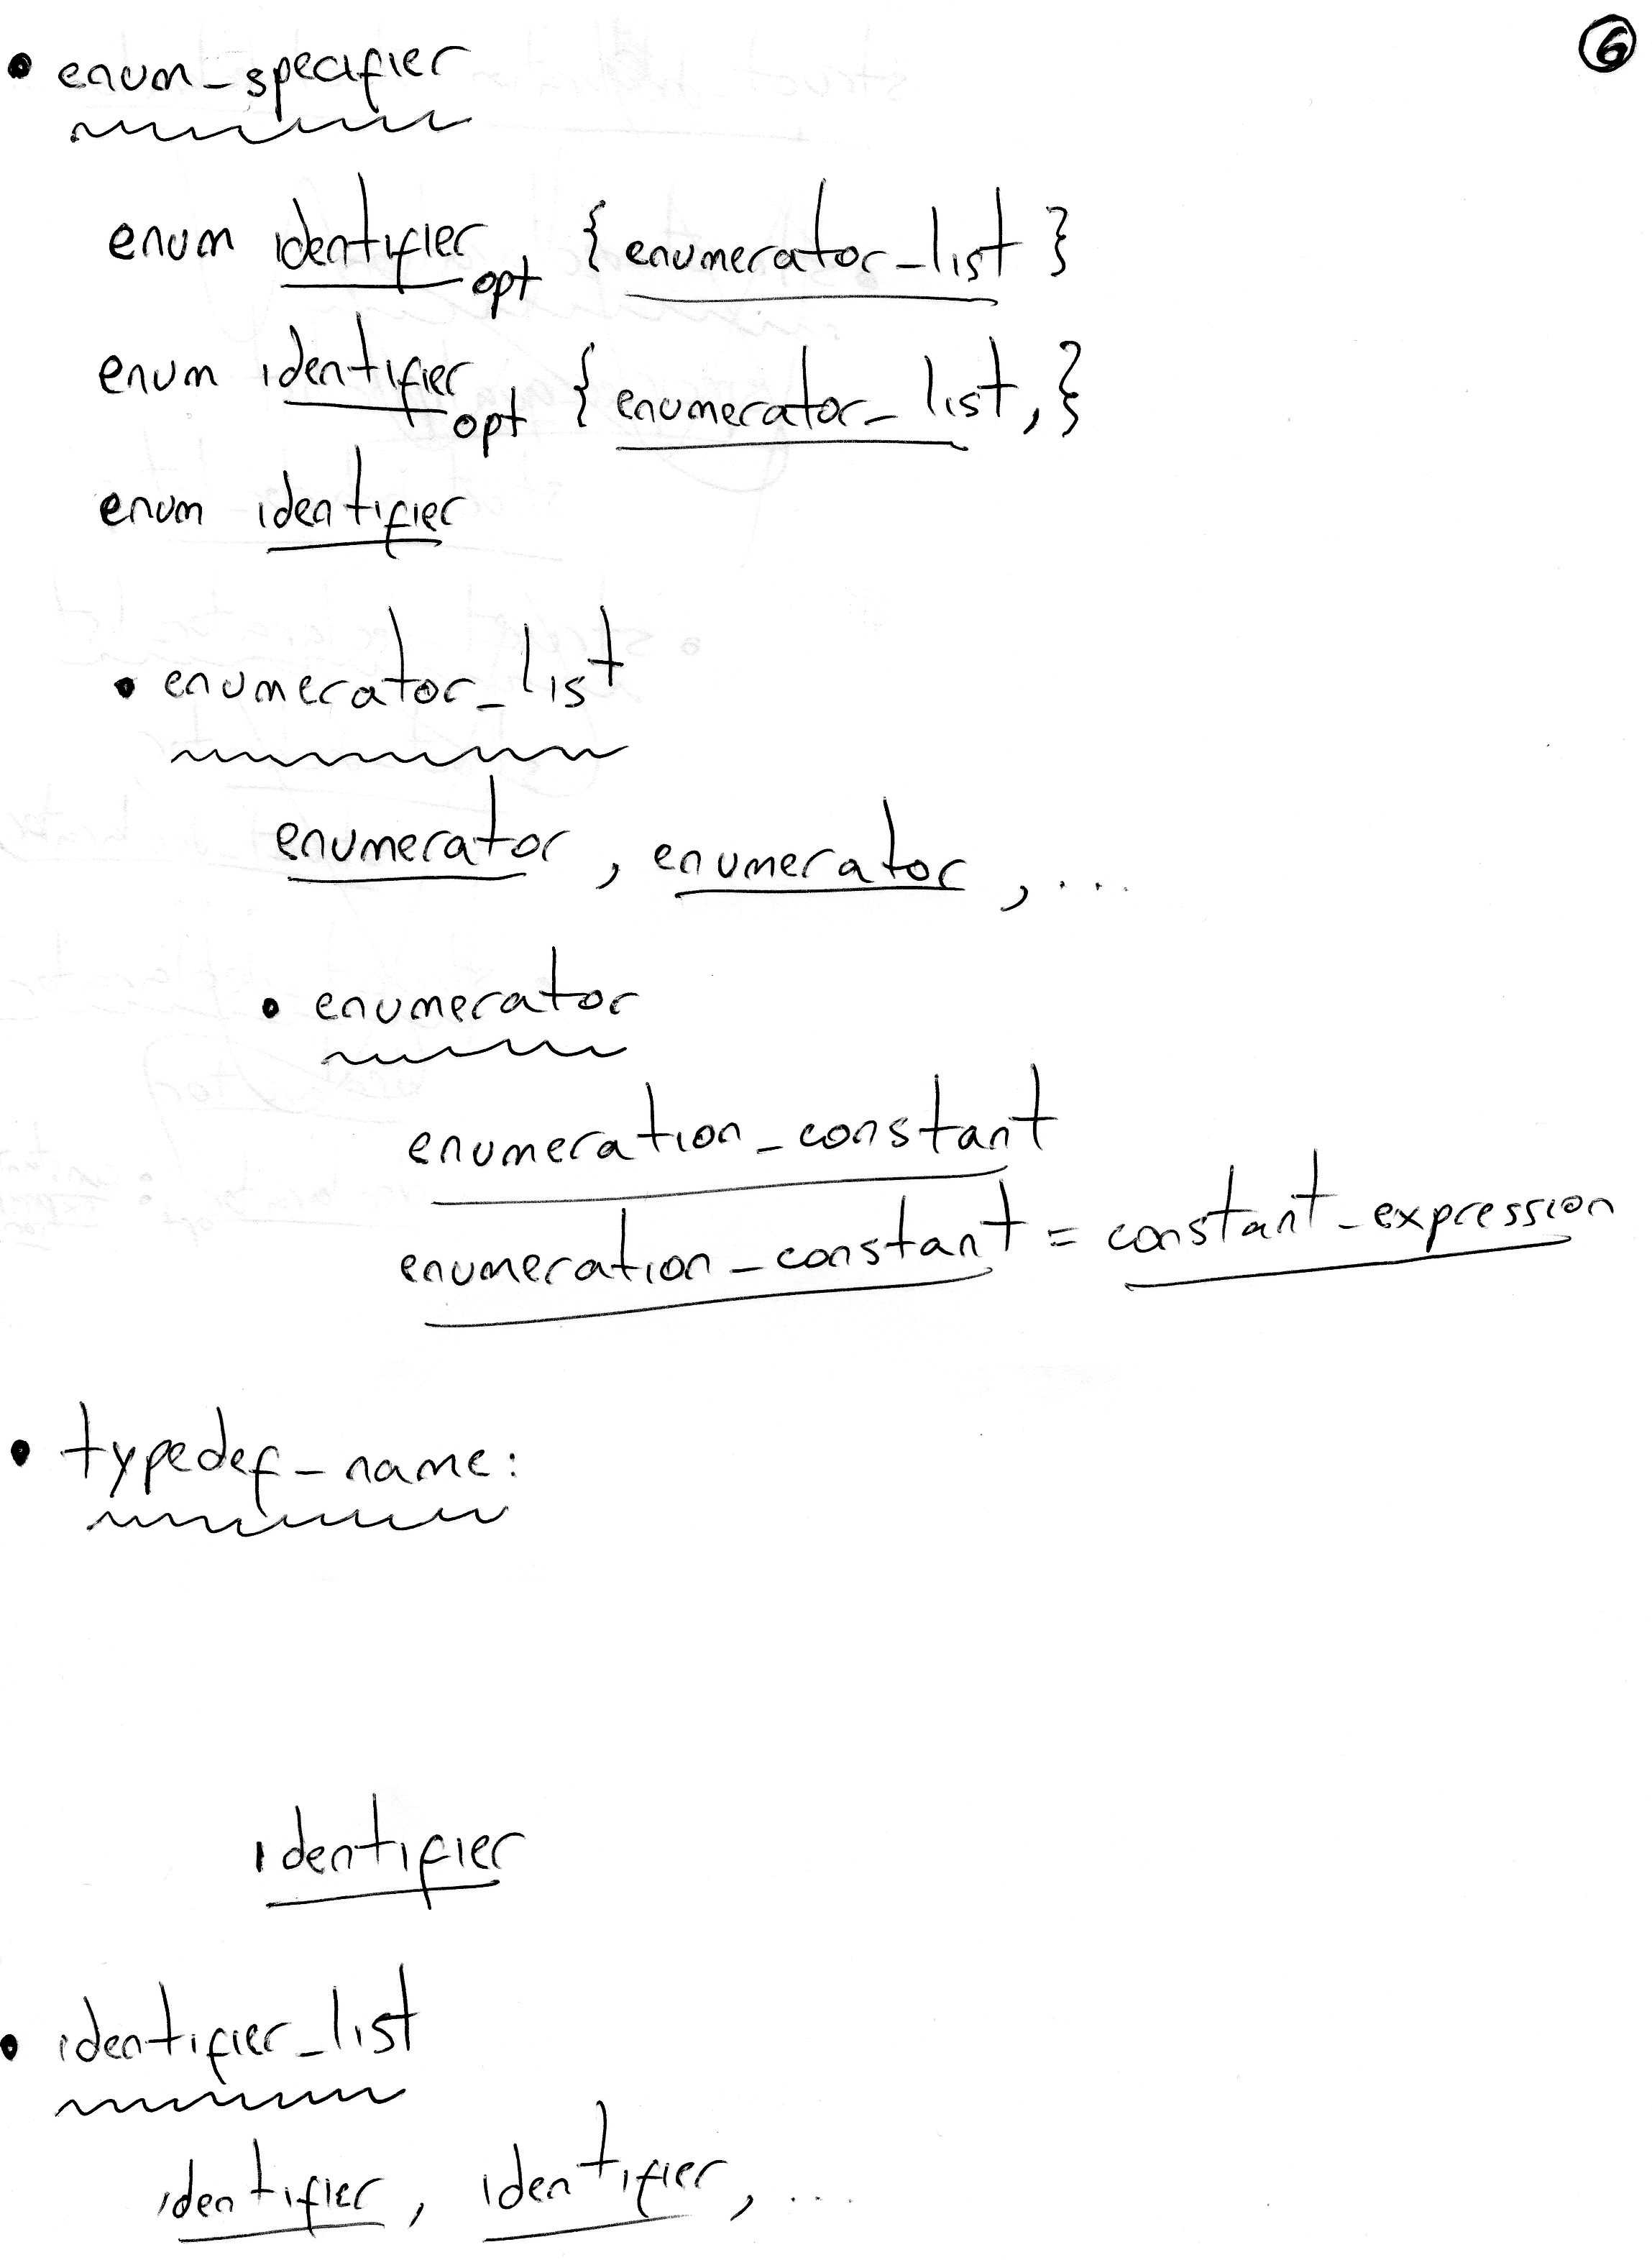 6
• enum_specifier
enum identifier opt { enumerator_list }
enum identifier opt { enumerator_list, }
enum identifier
• enumerator_list
enumerator, enumerator, ...
• enumerator
enumeration_constant
enumeration_constant = constant_expression
• typedef_name:
identifier
• identifier_list
identifier, identifier, ...